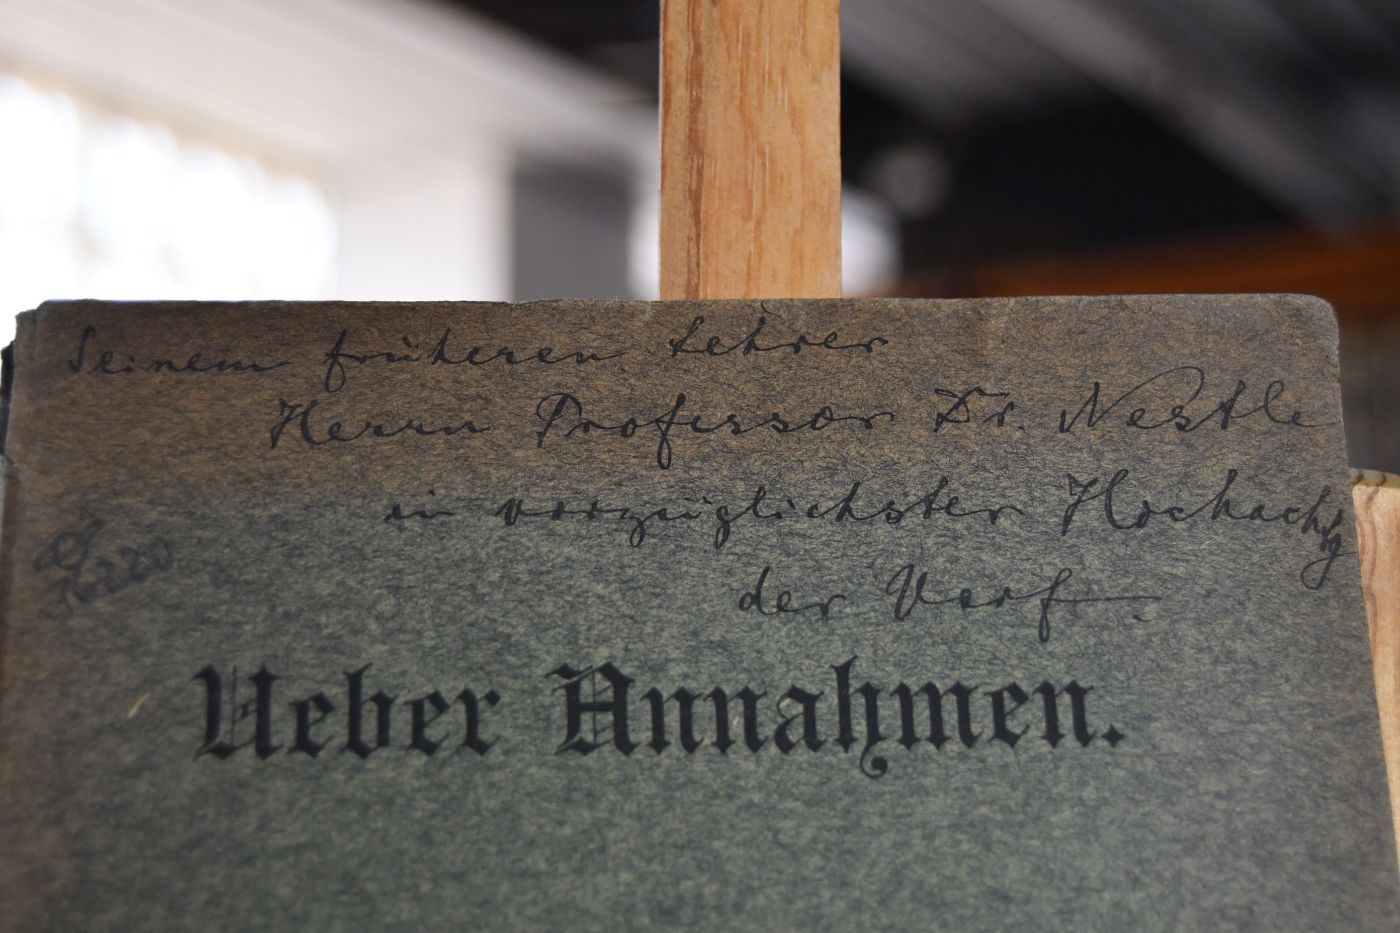 Seinem früheren Lehrer
Herrn Professor Dr. Nestle
in vorzüglichster Hochachtg
der Verf.
Ueber Annahmen.